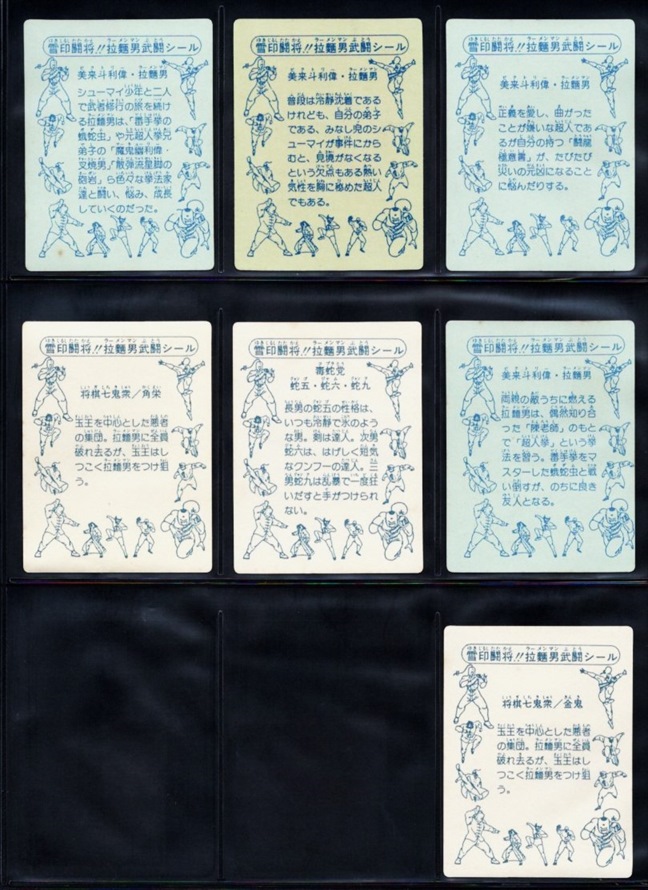 雪印闘将!!拉麵男武闘シール
美来斗利偉・拉麵男
シューマイ少年と二人
で武者修行の旅を続け
る拉麵男は、「毒手拳の
蛾蛇虫」や元超人拳兄
弟子の「魔鬼幽利偉・
叉焼男」「散弾流星脚の
砲岩」ら色々な拳法家
達と闘い、悩み、成長
していくのだった。
雪印闘将!!拉麵男武闘シール
美来斗利偉・拉麵男
普段は冷静沈着である
けれども、自分の弟子
である、みなし児のシ
ューマイが事件にから
むと、見境がなくなる
という欠点もある熱い
気性を胸に秘めた超人
でもある。
雪印闘将!!拉麵男武闘シール
美来斗利偉・拉麵男
正義を愛し、曲がった
ことが嫌いな超人であ
るが自分の持つ「闘龍
極意書」が、たびたび
災いの元凶になること
に悩んだりする。
雪印闘将!!拉麵男武闘シール
将棋七鬼衆／角栄
玉王を中心とした悪者
の集団。拉麵男に全員
破れ去るが、玉王はし
つこく拉麵男をつけ狙
う。
雪印闘将!!拉麵男武闘シール
毒蛇党
蛇五・蛇六・蛇九
長男の蛇五の性格は、
いつも冷静で氷のよう
な男。剣は達人。次男
蛇六は、はげしく短気
なクンフーの達人。三
男蛇九は乱暴で一度狂
いだすと手がつけられ
ない。
雪印闘将!!拉麵男武闘シール
美来斗利偉・拉麵男
両親の敵うちに燃える
拉麵男は、偶然知り合
った「陳老師」のもと
で「超人拳」という拳
法を習う。毒手拳をマ
スターした蛾蛇虫と戦
い倒すが、のちに良き
友人となる。
雪印闘将!!拉麵男武闘シール
将棋七鬼衆／金鬼
玉王を中心とした悪者
の集団。拉麵男に全員
破れ去るが、玉王はし
つこく拉麵男をつけ狙
う。